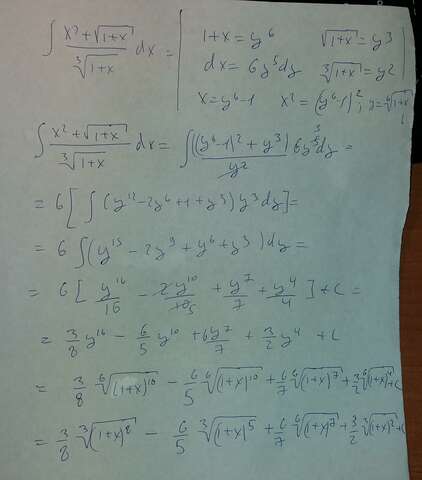 ∫ (x² + √(1+x)) / ∛(1+x) dx = | 1+x = y⁶ √(1+x) = y³
dx = 6y⁵dy ∛(1+x) = y²
x = y⁶-1 x² = (y⁶-1)²; y = ⁶√(1+x)
∫ (x² + √(1+x)) / ∛(1+x) dx = ∫ ((y⁶-1)² + y³) / y² 6y⁵ ³ dy =
= 6 [ ∫ (y¹² - 2y⁶ + 1 + y³) y³ dy ] =
= 6 ∫ (y¹⁵ - 2y⁹ + y⁶ + y³) dy =
= 6 [ y¹⁶/16 - 2y¹⁰/10 5 + y⁷/7 + y⁴/4 ] + C =
= 3/8 y¹⁶ - 6/5 y¹⁰ + 6y⁷/7 + 3/2 y⁴ + C
= 3/8 ⁶√(1+x)¹⁶ - 6/5 ⁶√(1+x)¹⁰ + 6/7 ⁶√(1+x)⁷ + 3/2 ⁶√(1+x)⁴ + C
= 3/8 ∛(1+x)⁸ - 6/5 ∛(1+x)⁵ + 6/7 ⁶√(1+x)⁷ + 3/2 ∛(1+x)² + C